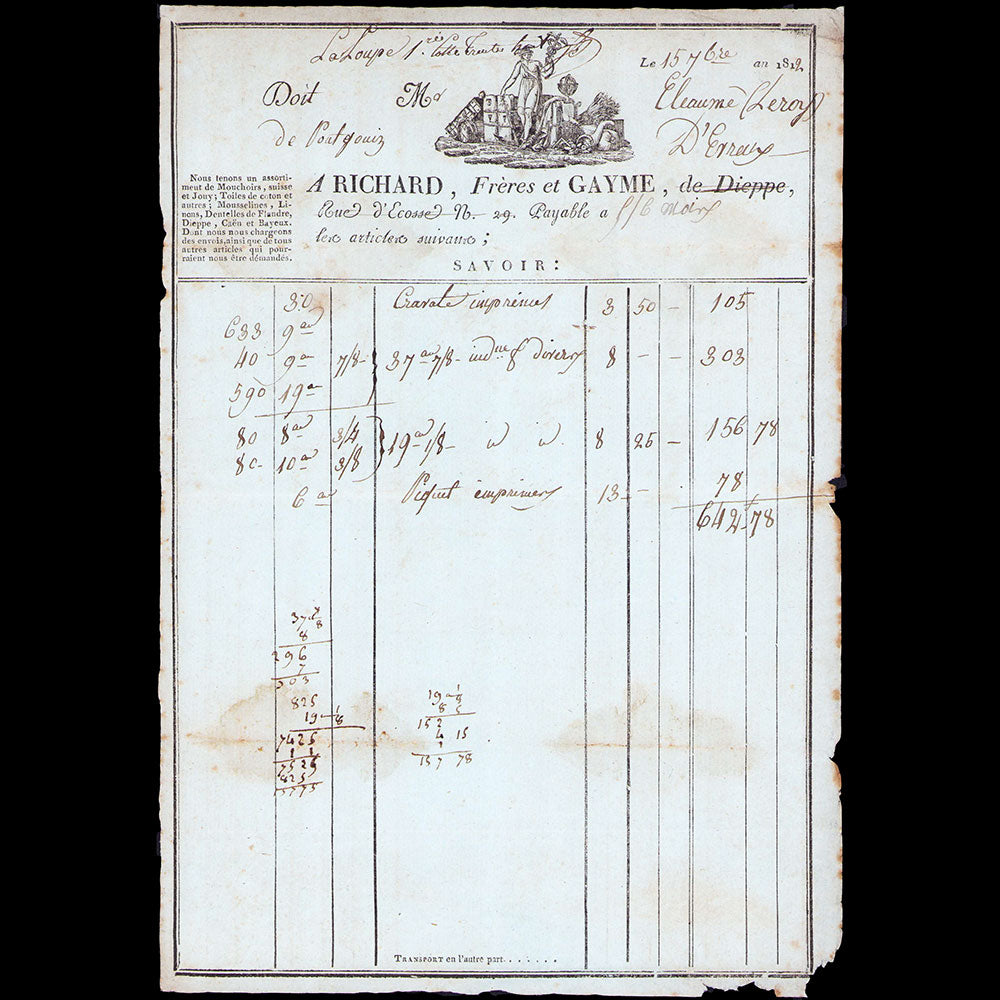 La Loupe 1.
Le 15 7bre an 1812
Doit Mr Eleaume Leroy
de Pontgouin D'Evreux
Nous tenons un assorti-
ment de Mouchoirs, suisse
et Jouy; Toiles de coton et
autres; Mousselines, Li-
nons, Dentelles de Flandre,
Dieppe, Caën et Bayeux.
Dont nous nous chargeons
des envois, ainsi que de tous
autres articles qui pour-
raient nous être démandés.
A RICHARD, Frères et GAYME, de Dieppe,
Rue d'Ecosse N. 29. Payable a 5/6 mois
les articles suivans;
SAVOIR:
30 Cravate imprimés 3 50 — 105
633 9 au
40 9 au 7/8 37 au 7/8 indne divers 8 — — 303
590 19 au
80 8 au 3/4
19 au 1/8 8 25 — 156 78
80 10 au 3/8
6 au Piquet imprimés 13 — 78
642 78
37 7/8
8
296
7
303
825
19 1/8
7425
1 1
7525
825
15775
19 1/8
8
152
4 15
1
157 78
TRANSPORT en l'autre part.......